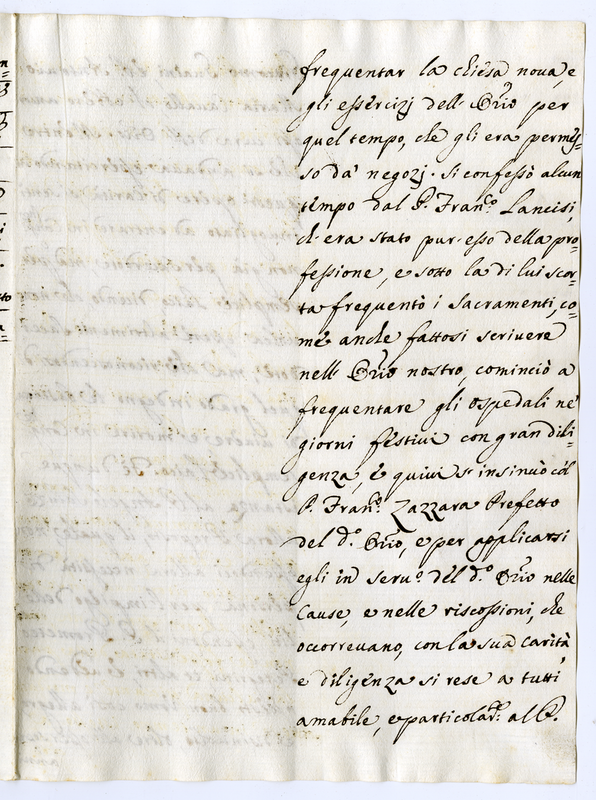 frequentar la chiesa nova, e
gli essercizj dell' Orio per
quel tempo, che gli era permes=
so da' negozj. Si confessò alcun
tempo dal P. Fran.co Lancisi,
ch'era stato pur esso della pro=
fessione, e sotto la di lui scor=
ta frequentò i sacramenti, co=
me anche fattosi scrivere
nell' Orio nostro, cominciò a
frequentare gli ospedali ne'
giorni festivi con gran dili=
genza, e quivi s'insinuò col
P. Fran.o Zazzara Prefetto
del d.o Orio, e per applicarsi
egli in serv.o del d.o Orio nelle
Cause, e nelle riscossioni, che
occorrevano, con la sua carità,
e diligenza si rese a tutti
amabile, e particolar.te al P.